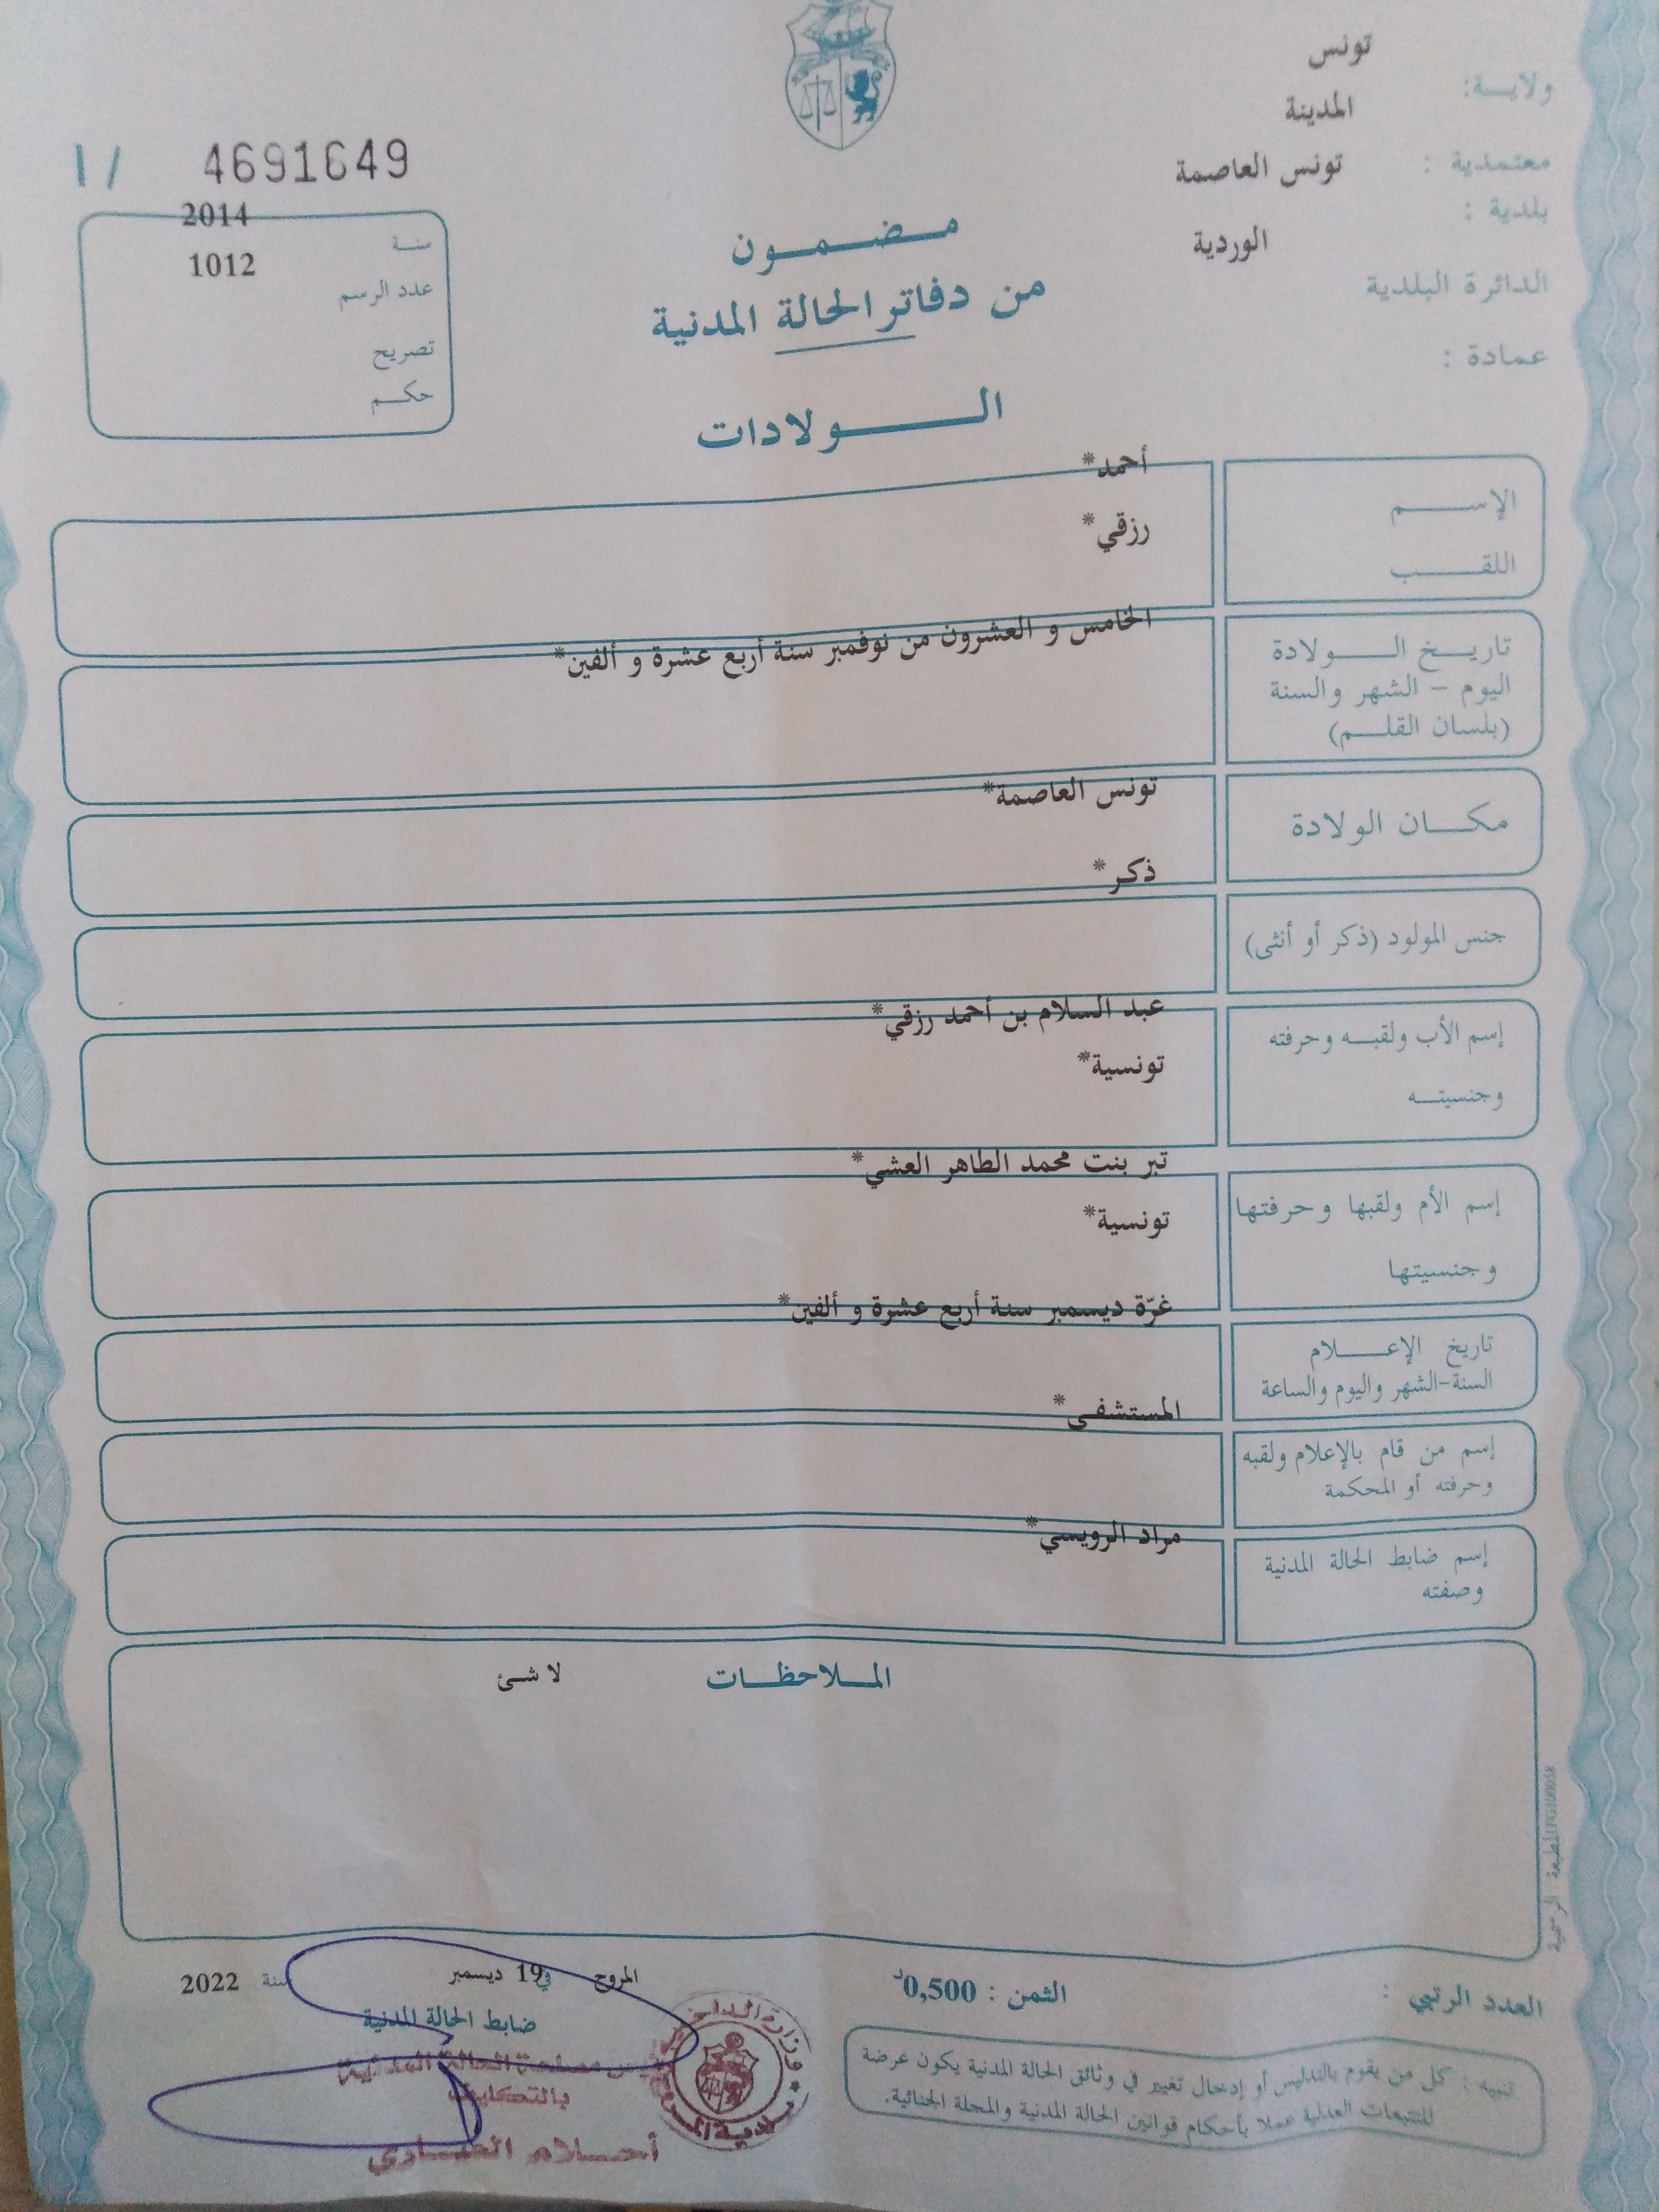 تونس
ولايـــة:
المدينة
معتمدية :
تونس العاصمة
بلدية :
الوردية
الدائرة البلدية
عمادة :
I / 4691649
2014
سنـــة
1012
عدد الرسم
تصريح
حكـــم
مــضــمــون
من دفاتر الحالة المدنية
الــــولادات
الإســـــم
أحمد*
اللقـــــب
رزقي*
تاريــخ الــــولادة
اليوم – الشهر والسنة
(بلسان القلـــم)
الخامس و العشرون من نوفمبر سنة أربع عشرة و ألفين*
مكـــان الولادة
تونس العاصمة*
جنس المولود (ذكر أو أنثى)
ذكر*
إسم الأب ولقبــه وحرفته
وجنسيتــه
عبد السلام بن أحمد رزقي*
تونسية*
إسم الأم ولقبها وحرفتها
وجنسيتها
تبر بنت محمد الطاهر العشي*
تونسية*
تاريخ الإعــــلام
السنة-الشهر واليوم والساعة
غرّة ديسمبر سنة أربع عشرة و ألفين*
إسم من قام بالإعلام ولقبه
وحرفته أو المحكمة
المستشفى*
إسم ضابط الحالة المدنية
وصفته
مراد الرويسي*
المــلاحظــات
لا شئ
المطبعة الرسمية
العدد الرتبي :
الثمن : 0,500د
المروج في 19 ديسمبر سنة 2022
ضابط الحالة المدنية
رئيس مصلحة الحالة المدنية
بالتكليف
أحـــلام
وزارة الداخلية
بلدية المروج
تنبيه : كل من يقوم بالتدليس أو إدخال تغيير في وثائق الحالة المدنية يكون عرضة
للتتبعات العدلية عملا بأحكام قوانين الحالة المدنية والمجلة الجنائية.